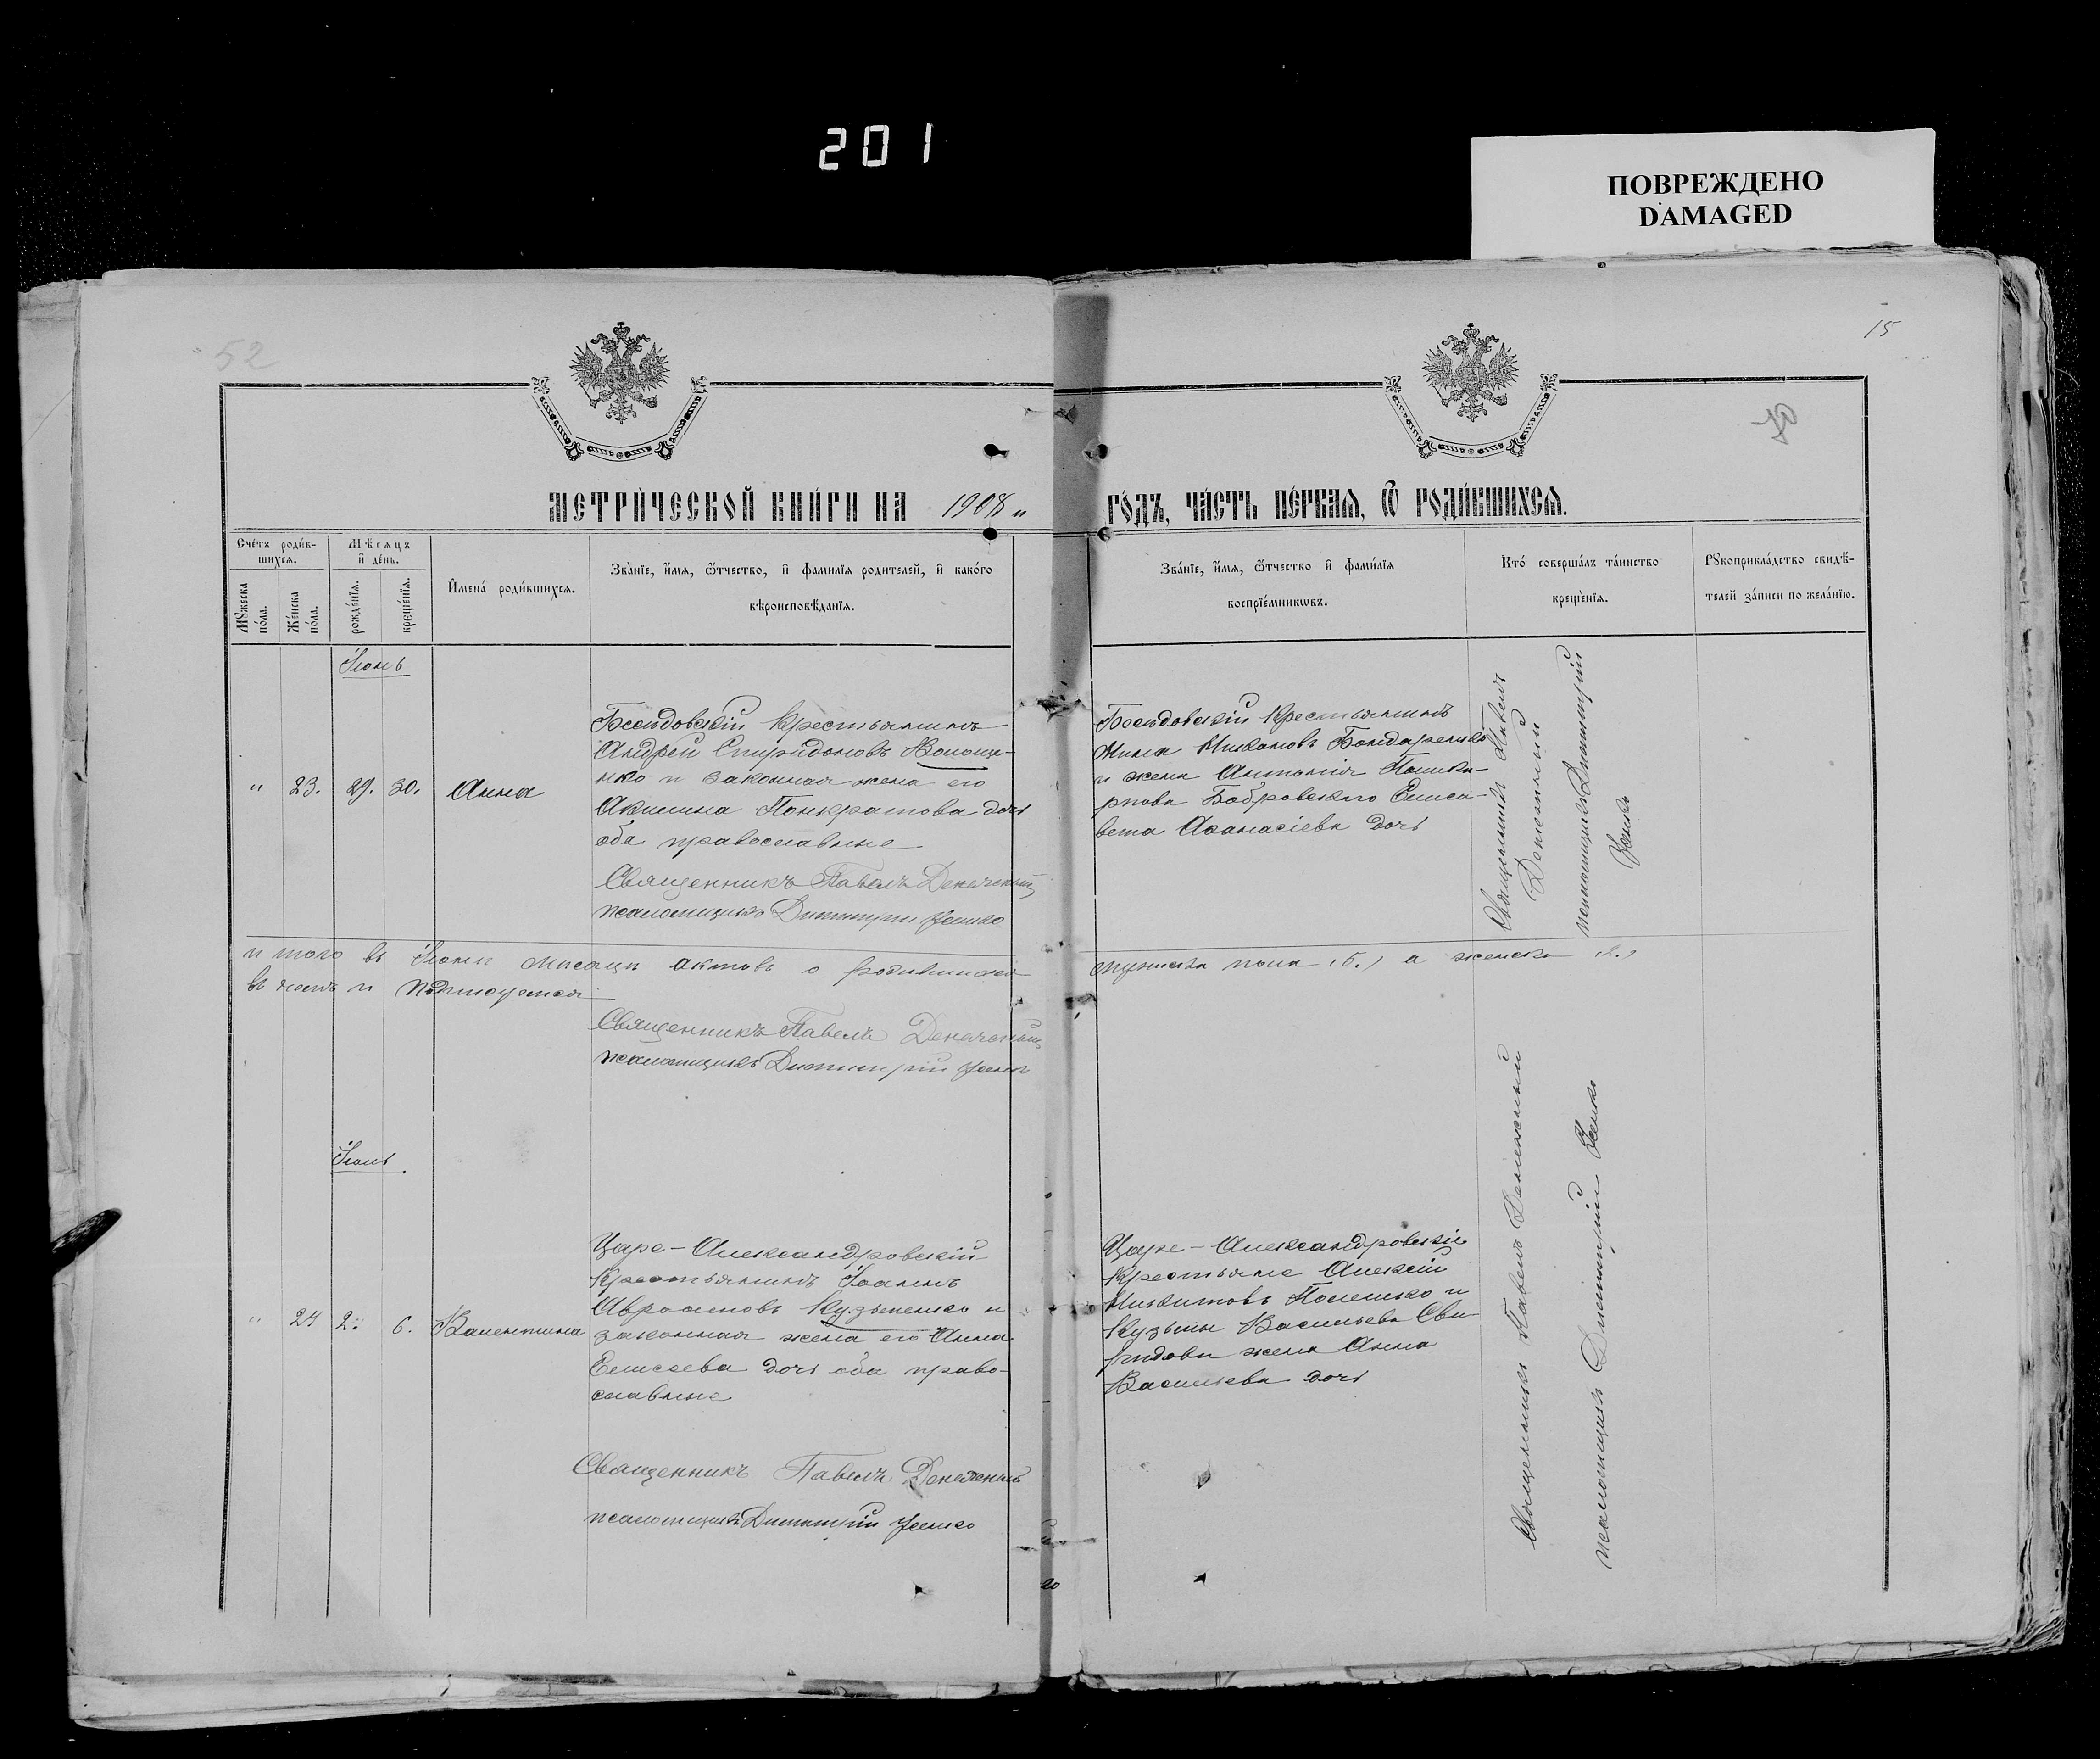 201
ПОВРЕЖДЕНО
DAMAGED
52
15
МЕТРИ́ЧЕСКОЙ КНИ́ГИ НА 1908 „ ГО́ДЪ, ЧА́СТЬ ПЕ́РВАЯ, Ѿ РОДИ́ВШИХСЯ.
Сче́тъ роди́в-
шихся.
Мѣсяцъ
и҆ де́нь.
Мꙋ́жеска по́ла.
Же́нска по́ла.
рожде́нїѧ.
креще́нїѧ.
И҆мена́ роди́вшихсѧ.
Зва́нїе, и҆́мѧ, ѻ҆́тчество, и҆ фами́лїѧ роди́телей, и҆ како́гѡ
вѣроисповѣ́данїѧ.
Зва́нїе, и҆́мѧ, ѻ҆́тчество и҆ фами́лїѧ
воспрїе́мникѡвъ.
Кто̀ соверша́лъ та́инство
креще́нїѧ.
Рꙋкоприкла́дство свидѣ́-
телей за́писи по жела́нїю.
Іюнь
„ 23. 29. 30. Анна
крестьянинъ
Андрей Спиридоновъ
нко и законная жена его
Акилина Понкратова дочь
оба православные
Священникъ Павелъ Денежный
псаломщикъ Димитрій Усенко
крестьянинъ
Бондаренко
и жена Антонія
рпова Бобровскаго Елиса-
вета Афанасіева дочь
Священникъ Павелъ
Денежный
псаломщикъ Димитрій
Усенко
и того въ Іюнѣ мѣсяцѣ актовъ о родившихся мужеска пола (5.) а женска (2.)
Священникъ Павелъ Денежный
псаломщикъ Димитрій Усенко
Іюль
„ 24 2. 6. Валентина
Царе-Александровскій
крестьянинъ Іоаннъ
Авраамовъ Кузьменко и
законная жена его Анна
Елисеева дочь оба право-
славные
Священникъ Павелъ Денежный
псаломщикъ Димитрій Усенко
Царе-Александровскіе
крестьяне Алексій
Никитовъ и
Кузьмы Васильева Сви-
ридова жена Анна
Васильева дочь
Священникъ Павелъ Денежный
псаломщикъ Димитрій Усенко